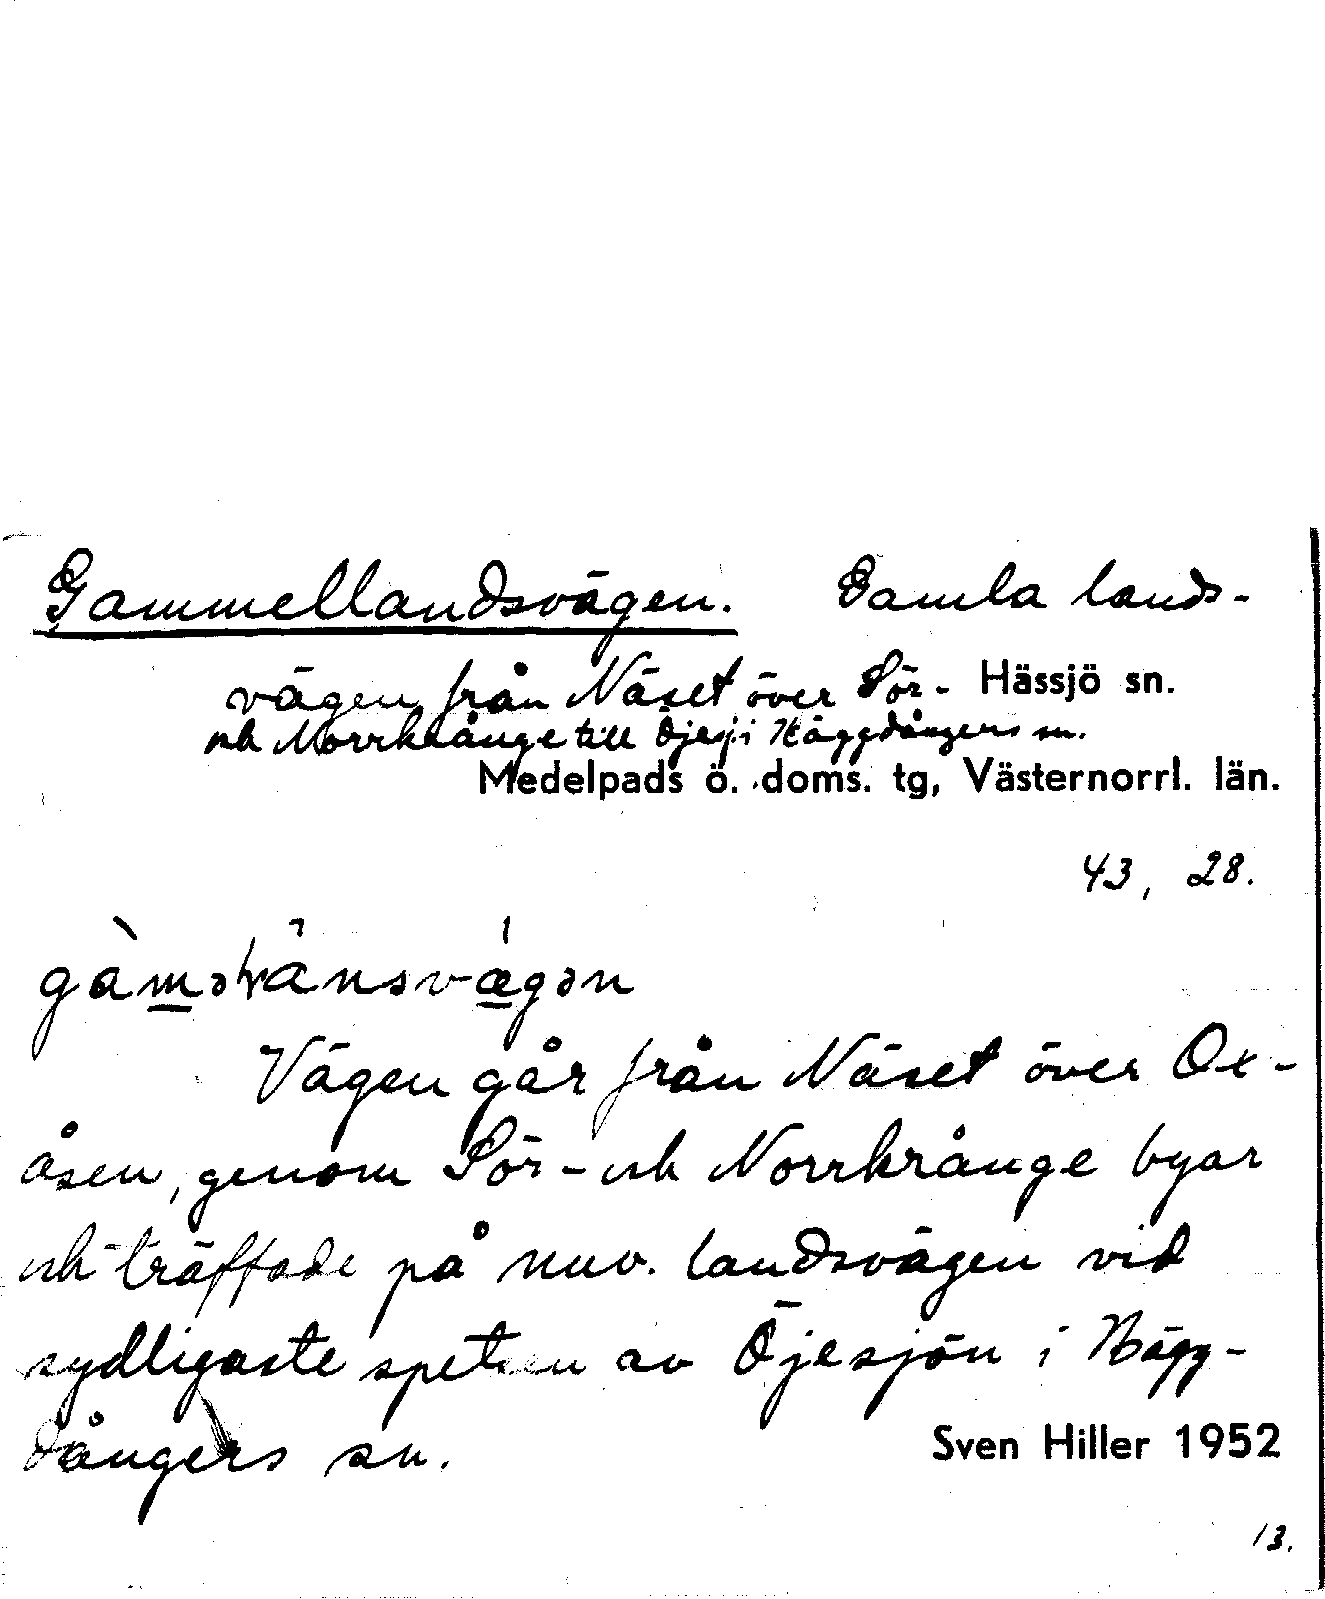 Gammellandsvägen. Gamla lands-
vägen från Näset över Sör- Hässjö sn.
och Norrkrånge till Öjesj. i Häggdångers sn.
Medelpads ö. doms. tg, Västernorrl. län.
43, 28.
Vägen går från Näset över Ox-
åsen, genom Sör- och Norrkrånge byar
och träffade på nuv. landsvägen vid
sydligaste spetsen av Öjesjön i Hägg-
dångers sn.
Sven Hiller 1952
13.